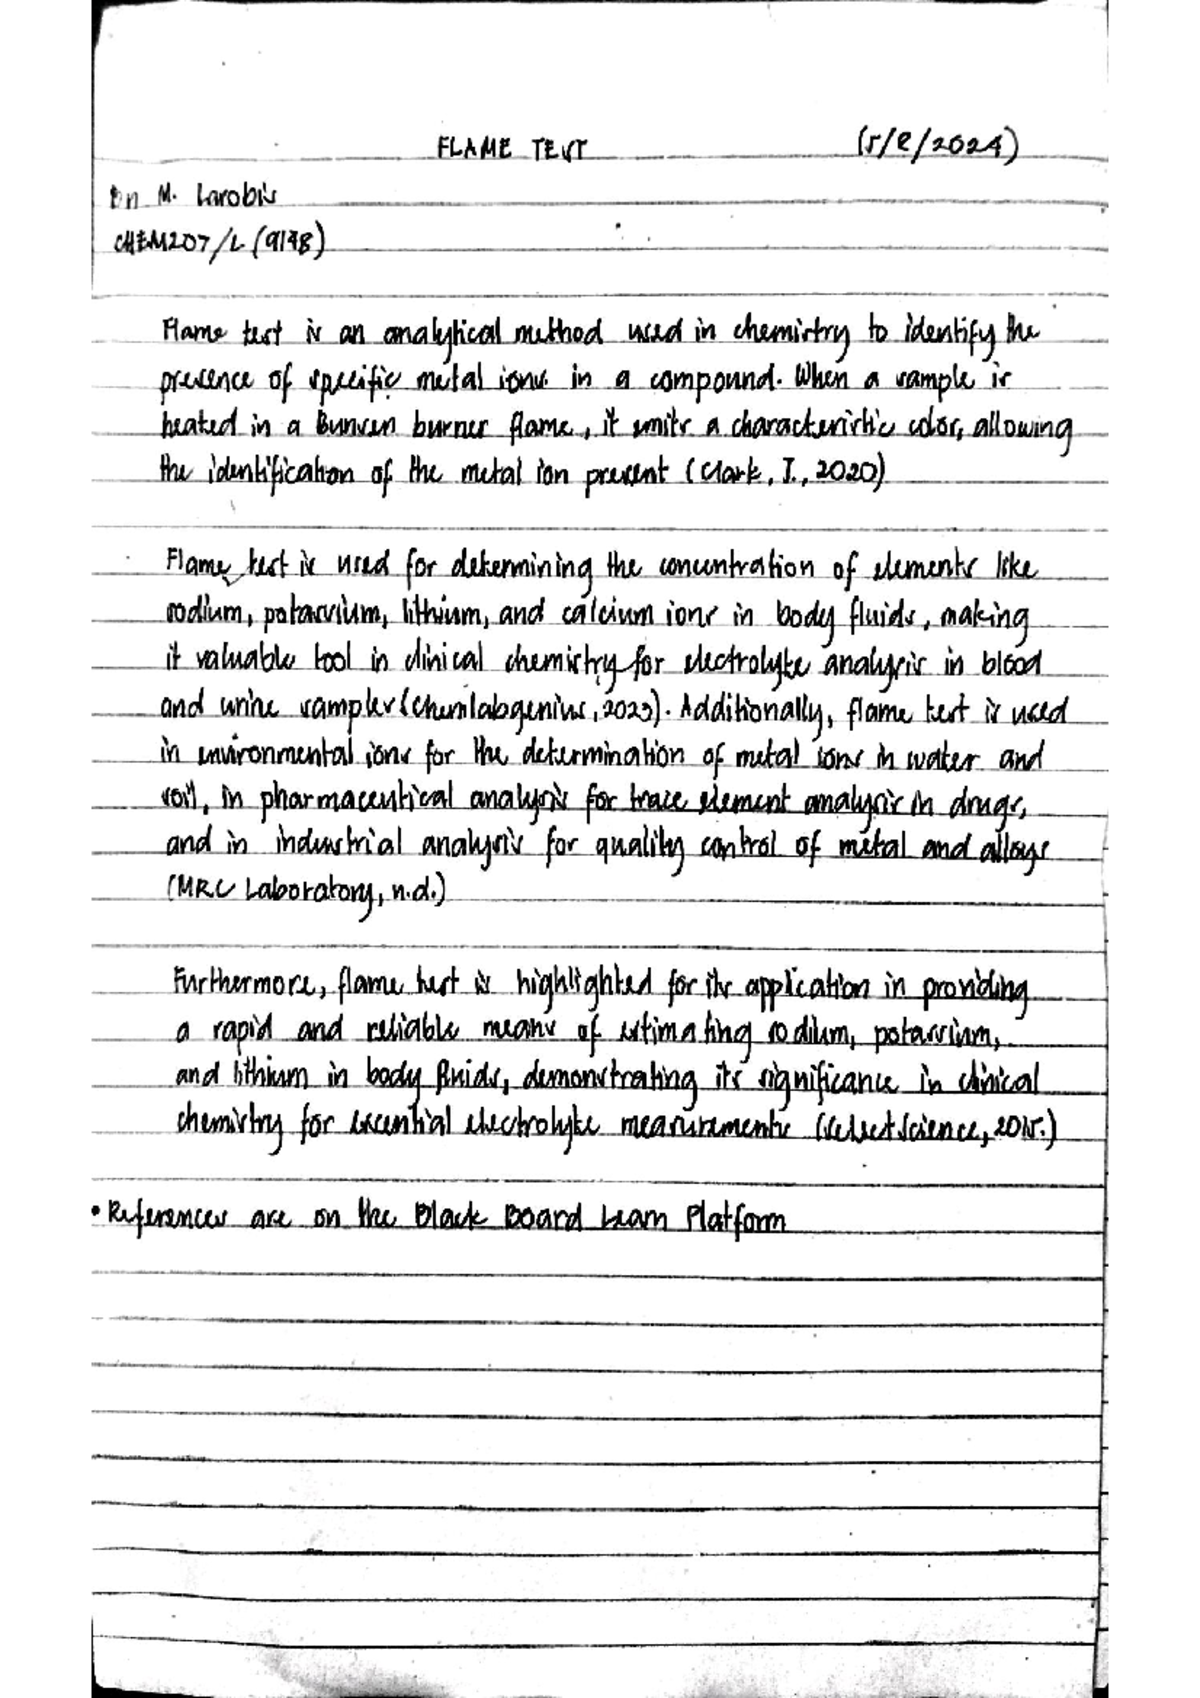 FLAME TEST (5/2/2024)
M. Larobis
CHEM207/L (9148)
Flame test is an analytical method used in chemistry to identify the
presence of specific metal ions in a compound. When a sample is
heated in a Bunsen burner flame, it emits a characteristic color, allowing
the identification of the metal ion present (Clark, J., 2020)
Flame test is used for determining the concentration of elements like
sodium, potassium, lithium, and calcium ions in body fluids, making
it valuable tool in clinical chemistry for electrolyte analysis in blood
and urine samples (Chemlabgenius, 2023). Additionally, flame test is used
in environmental ions for the determination of metal ions in water and
soil, in pharmaceutical analysis for trace element analysis in drugs,
and in industrial analysis for quality control of metal and alloys
(MRC Laboratory, n.d.)
Furthermore, flame test is highlighted for its application in providing
a rapid and reliable means of estimating sodium, potassium,
and lithium in body fluids, demonstrating its significance in clinical
chemistry for essential electrolyte measurements (SelectScience, 2015.)
• References are on the Black Board Learn Platform